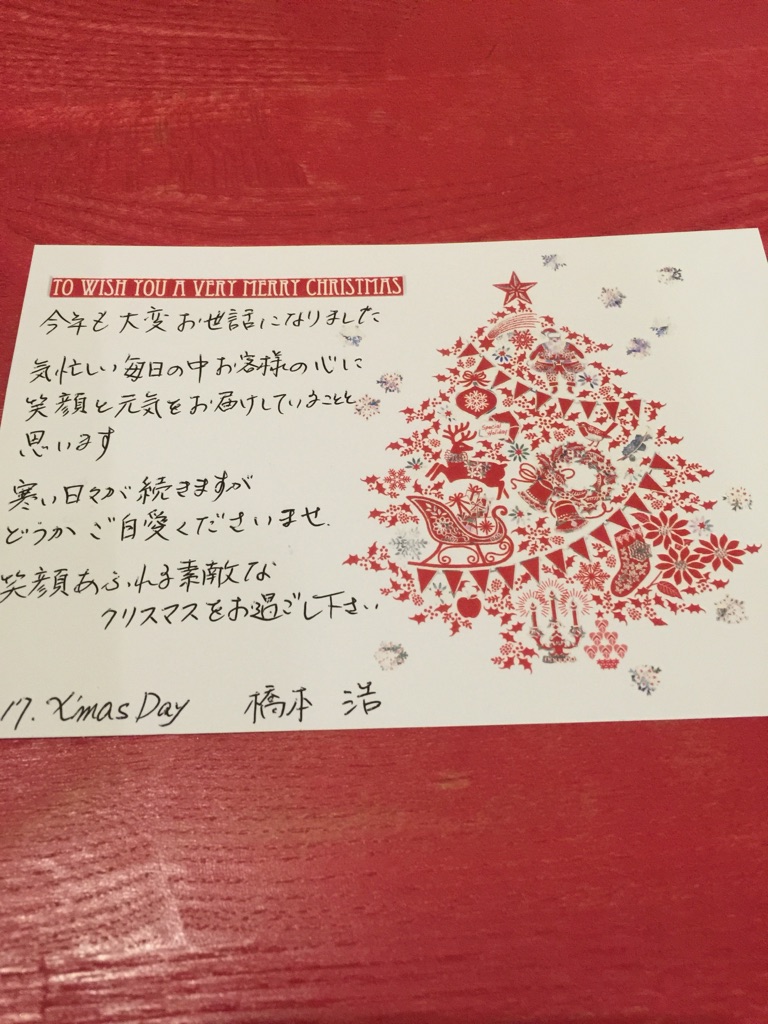 TO WISH YOU A VERY MERRY CHRISTMAS
今年も大変お世話になりました
気忙しい毎日の中お客様の心に
笑顔と元気をお届けしていることと
思います
寒い日々が続きますが
どうかご自愛くださいませ.
笑顔あふれる素敵な
クリスマスをお過ごし下さい
17. X'mas Day 橋本 浩